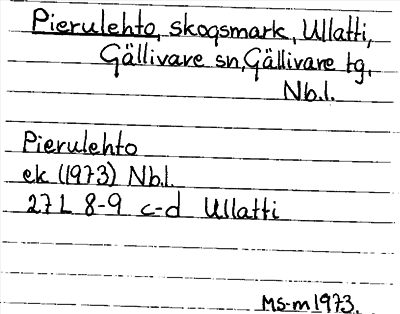 Pierulehto, skogsmark, Ullatti,
Gällivare sn, Gällivare tg,
Nb.l.
Pierulehto
ek (1973) Nb.l.
27 L 8-9 c-d Ullatti
Ms-m 1973.